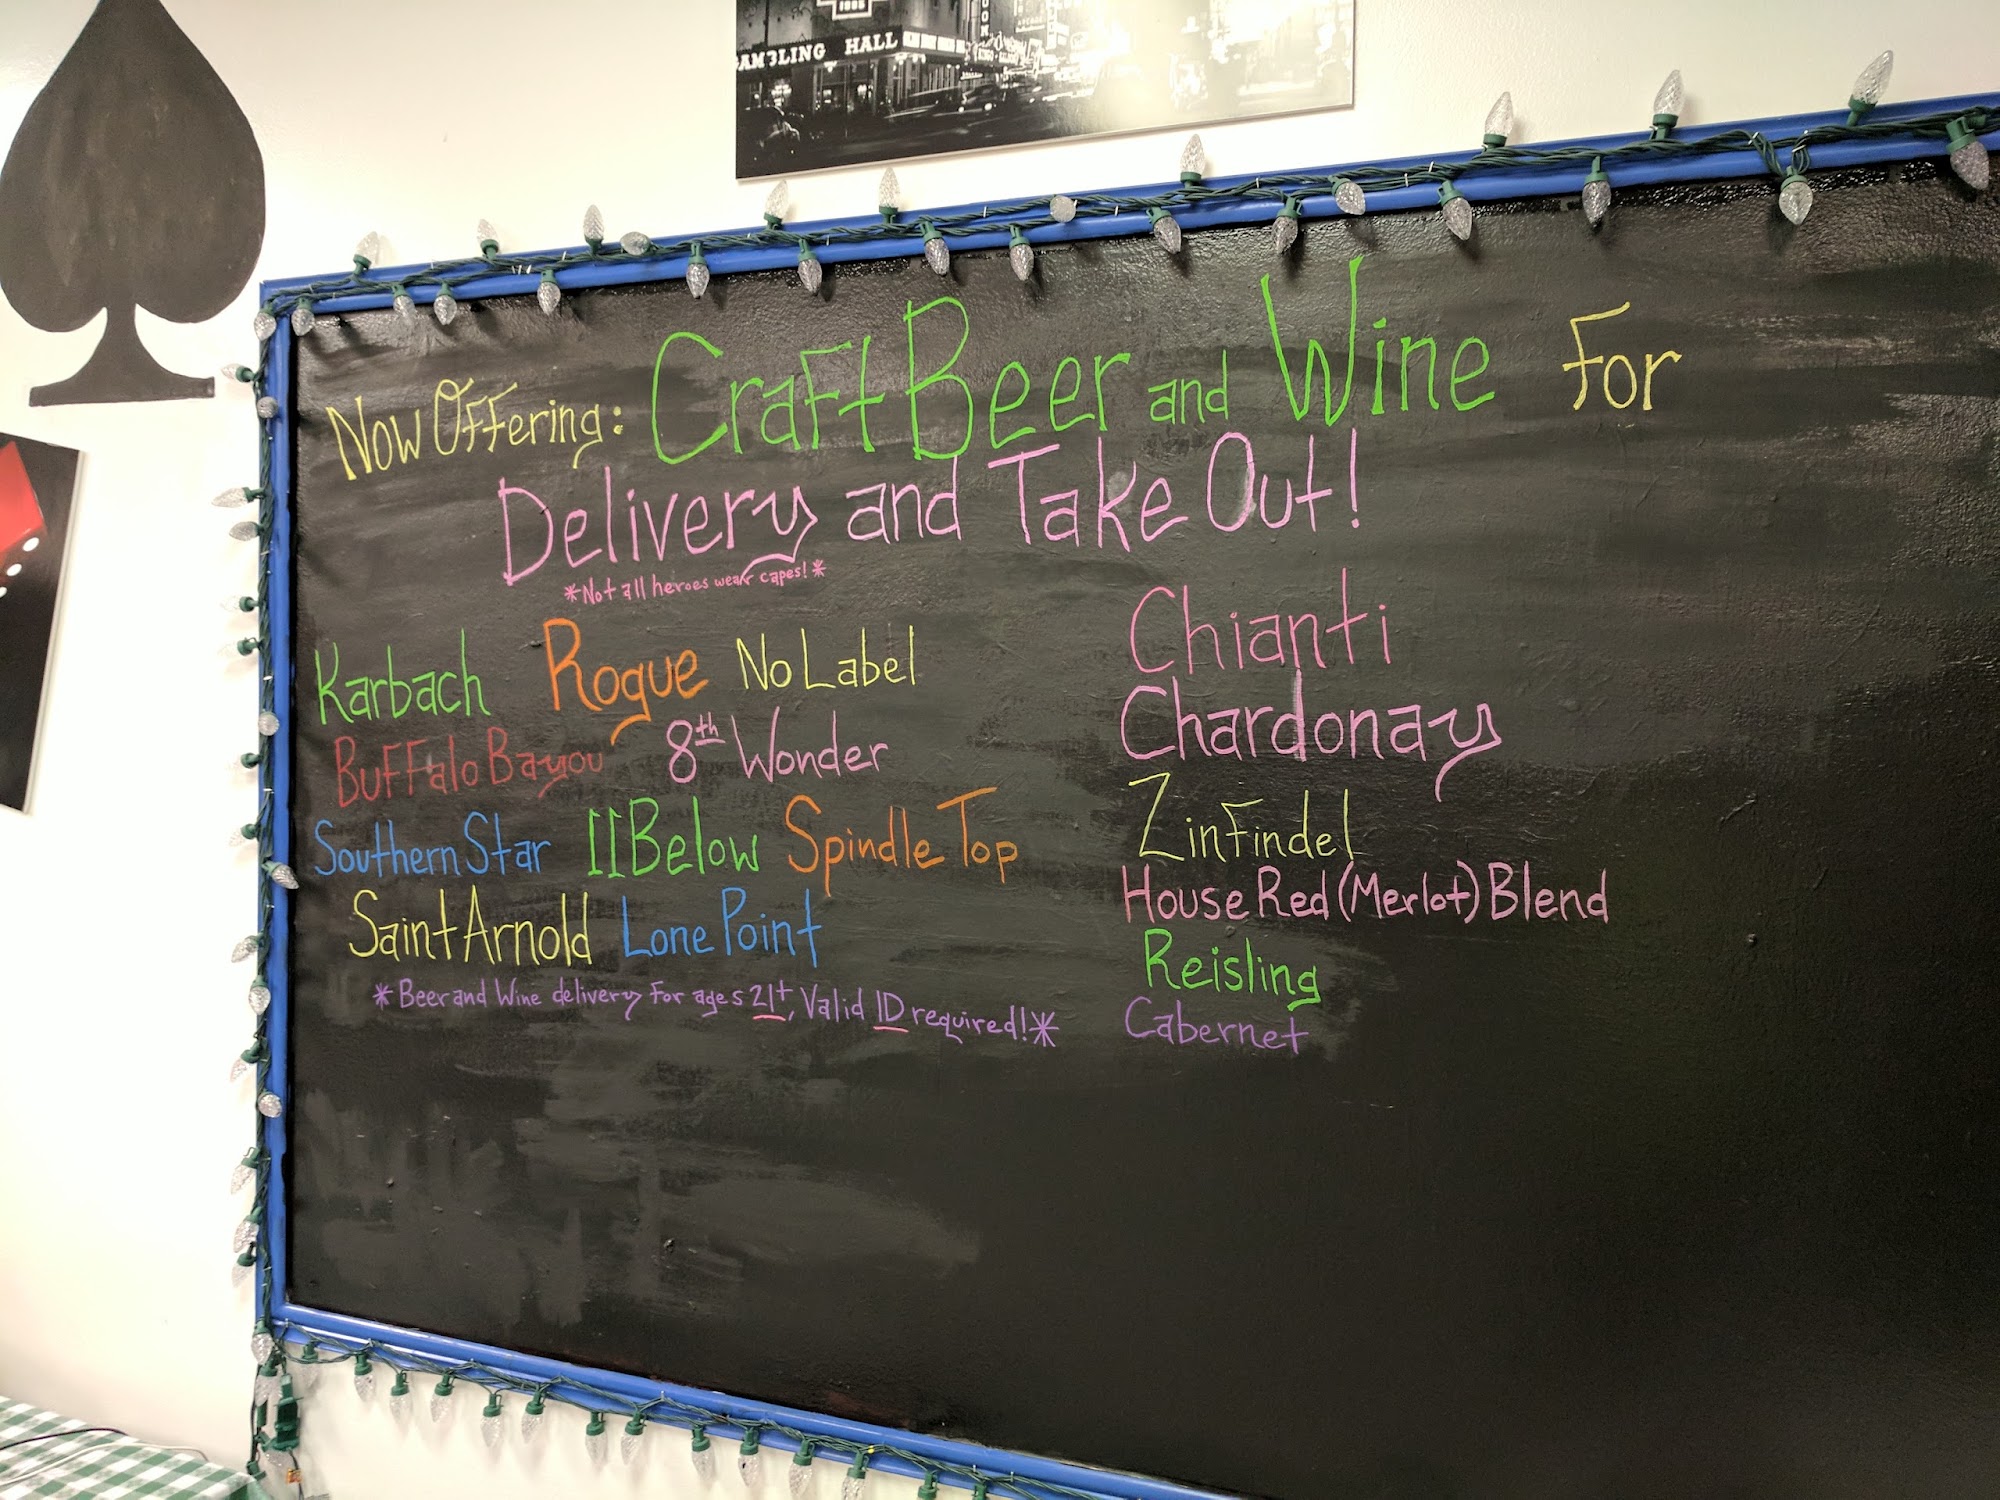 1885
GAMBLING HALL
Now Offering: Craft Beer and Wine for
Delivery and Take Out!
*Not all heroes wear capes!*
Karbach Rogue No Label
Buffalo Bayou 8th Wonder
Southern Star 11Below Spindle Top
Saint Arnold Lone Point
*Beer and Wine delivery for ages 21+, Valid ID required!*
Chianti
Chardonay
Zinfindel
House Red (Merlot) Blend
Reisling
Cabernet